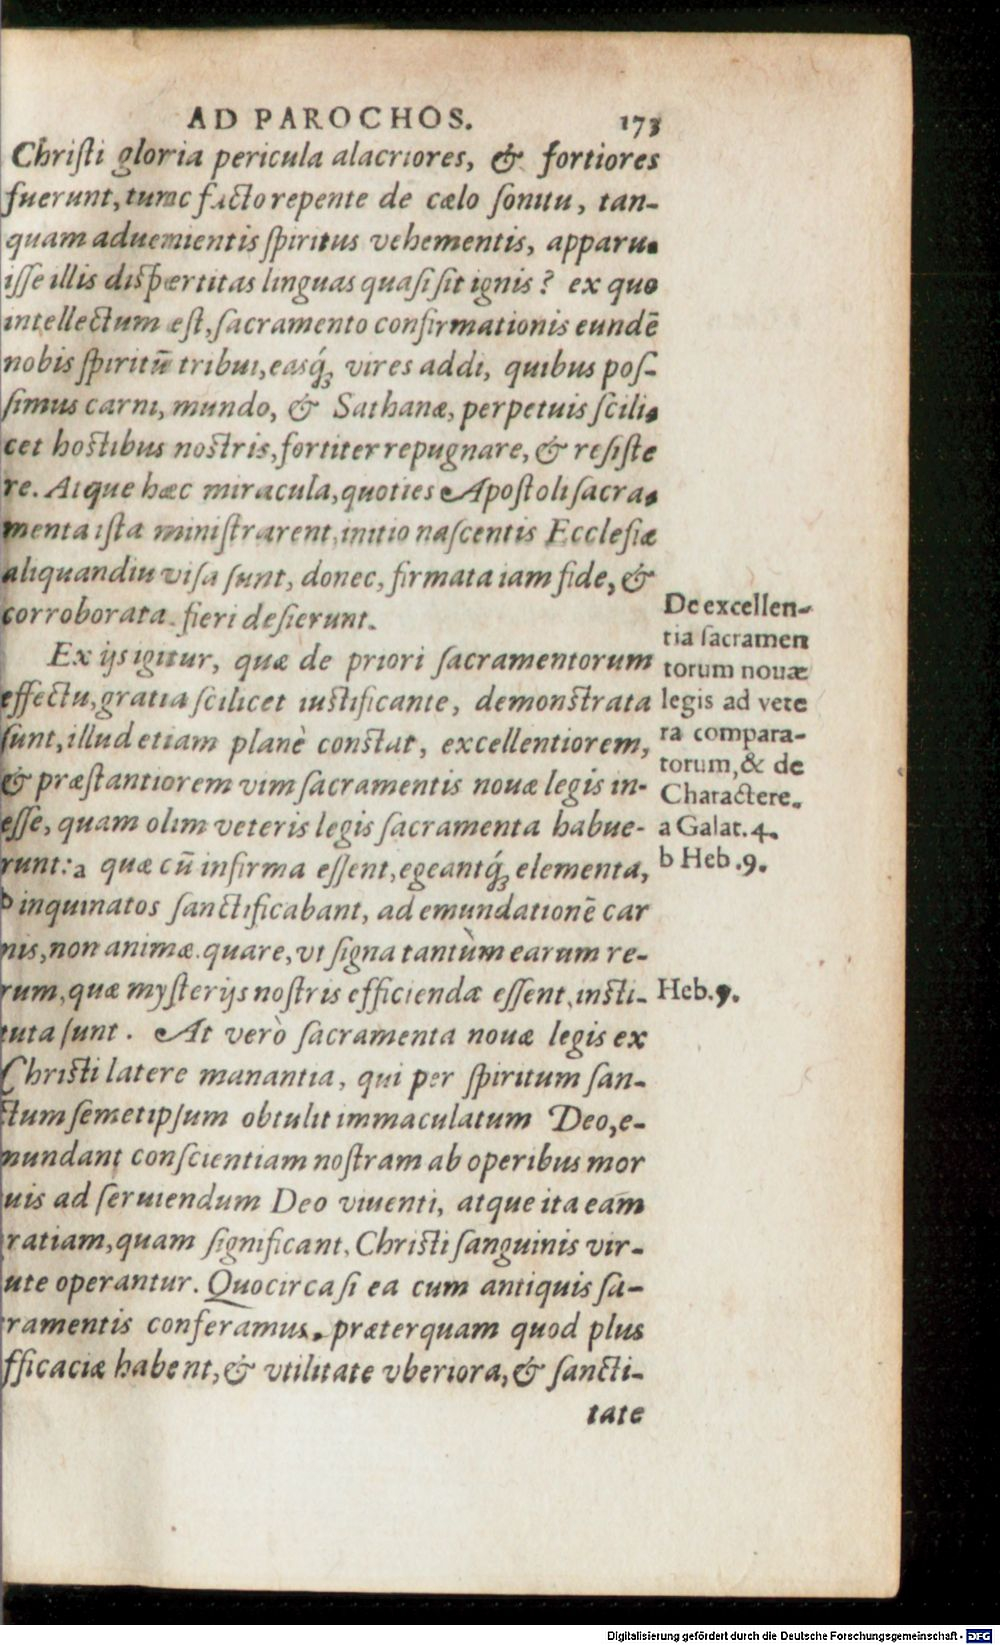 AD PAROCHOS. 173
Chriſti gloria pericula alacriores, & fortiores
fuerunt, tunc facto repente de cælo ſonitu, tan-
quam aduenientis ſpiritus vehementis, apparu-
iſſe illis diſpertitas linguas quaſi ſit ignis? ex quo
intellectum eſt, ſacramento confirmationis eundē
nobis ſpiritū tribui, easq́; vires addi, quibus poſ-
ſimus carni, mundo, & Sathanæ, perpetuis ſcili-
cet hoſtibus noſtris, fortiter repugnare, & reſiſte
re. Atque hæc miracula, quoties Apoſtoli ſacra-
menta iſta miniſtrarent, initio naſcentis Eccleſiæ
aliquandiu viſa ſunt, donec, firmata iam fide, &
corroborata fieri deſierunt.
Ex ijs igitur, quæ de priori ſacramentorum
effectu, gratia ſcilicet iuſtificante, demonſtrata
ſunt, illud etiam planè conſtat, excellentiorem,
& præſtantiorem vim ſacramentis nouæ legis in-
eſſe, quam olim veteris legis ſacramenta habue-
runt: a quæ cū infirma eſſent, egeantq́; elementa,
b inquinatos ſanctificabant, ad emundationē car
nis, non animæ. quare, vt ſigna tantùm earum re-
rum, quæ myſterijs noſtris efficiendæ eſſent, inſti-
tuta ſunt. At verò ſacramenta nouæ legis ex
Chriſti latere manantia, qui per ſpiritum ſan-
ctum ſemetipſum obtulit immaculatum Deo, e-
mundant conſcientiam noſtram ab operibus mor
uis ad ſeruiendum Deo viuenti, atque ita eam
ratiam, quam ſignificant, Chriſti ſanguinis vir-
ute operantur. Quocirca ſi ea cum antiquis ſa-
ramentis conferamus, præterquam quod plus
fficaciæ habent, & vtilitate vberiora, & ſancti-
tate
De excellen-
tia ſacramen
torum nouæ
legis ad vete
ra compara-
torum, & de
Charactere.
a Galat. 4.
b Heb. 9.
Heb. 9.
Digitalisierung gefördert durch die Deutsche Forschungsgemeinschaft - DFG